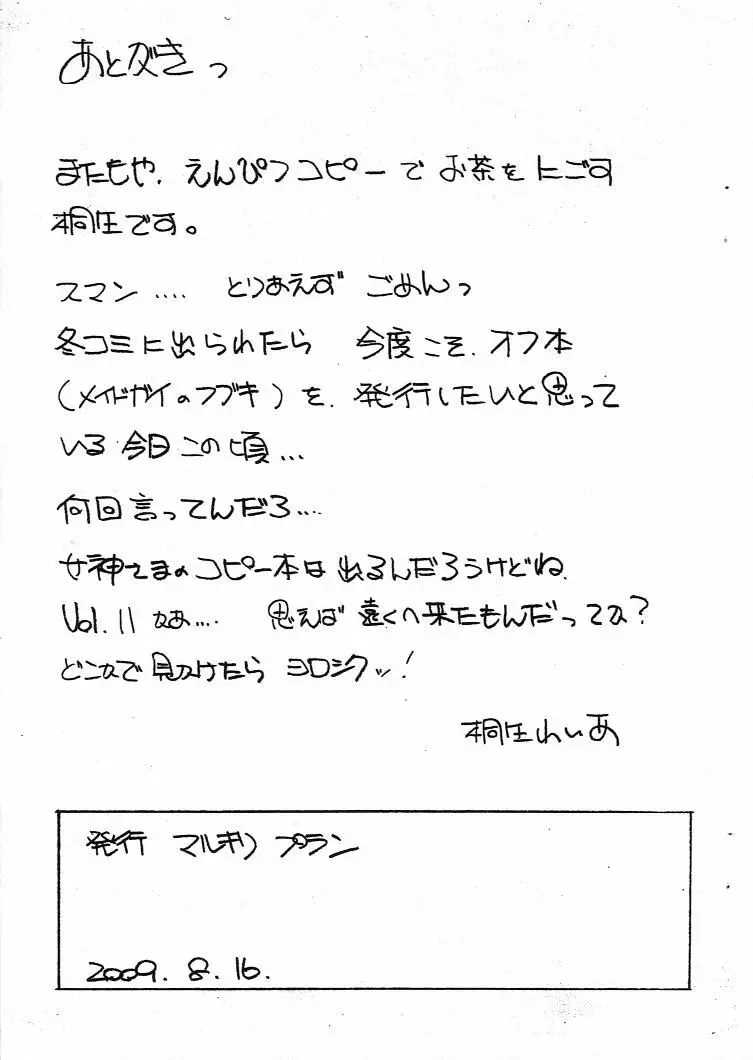 あとがきっ
またもや、えんぴつコピーで お茶をにごす
桐生です。
スマン‥‥ とりあえず ごめんっ
冬コミに出られたら 今度こそ、オフ本
(メイドガイのフブキ)を、発行したいと思って
いる今日この頃…
何回言ってんだろ‥‥
女神さまのコピー本は出るんだろうけどね、
Vol.11 なぁ‥‥ 思えば 遠くへ来たもんだってか?
どこかで見かけたら ヨロシクッ!
桐生れいあ
発行 マルキリプラン
2009.8.16.